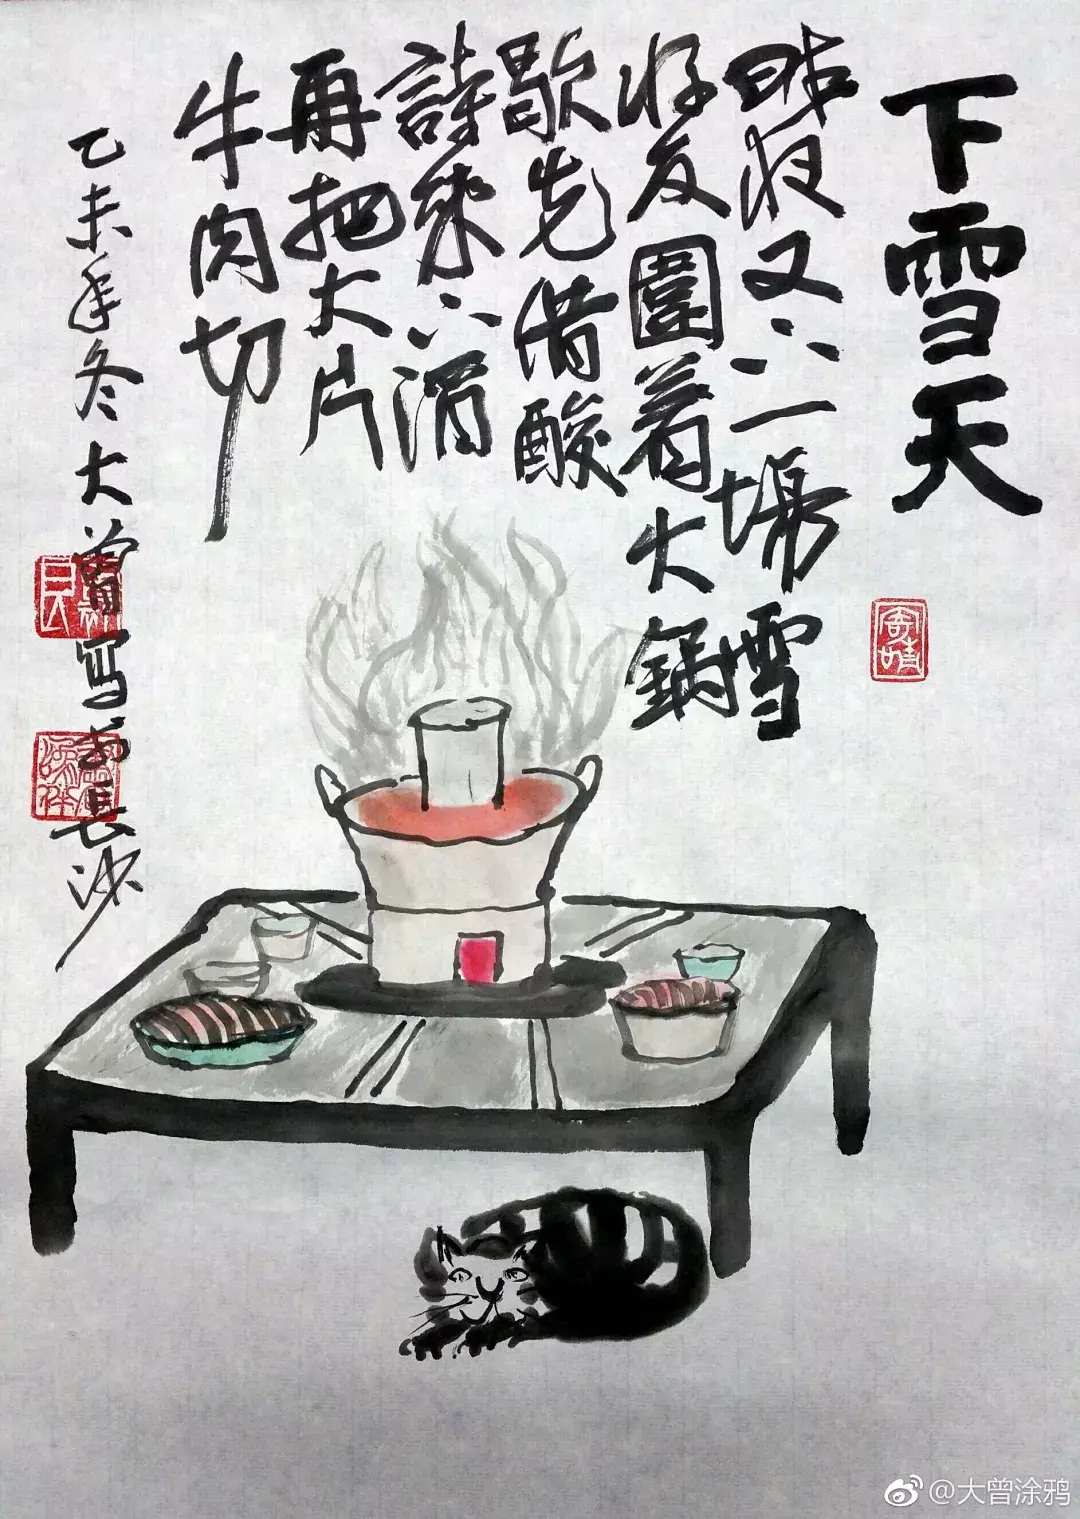 下雪天
昨夜又下一場雪
好友圍着火鍋
歇先借酸
詩來下酒
再把大片
牛肉切
乙未年冬大曾写于長沙
@大曾涂鸦